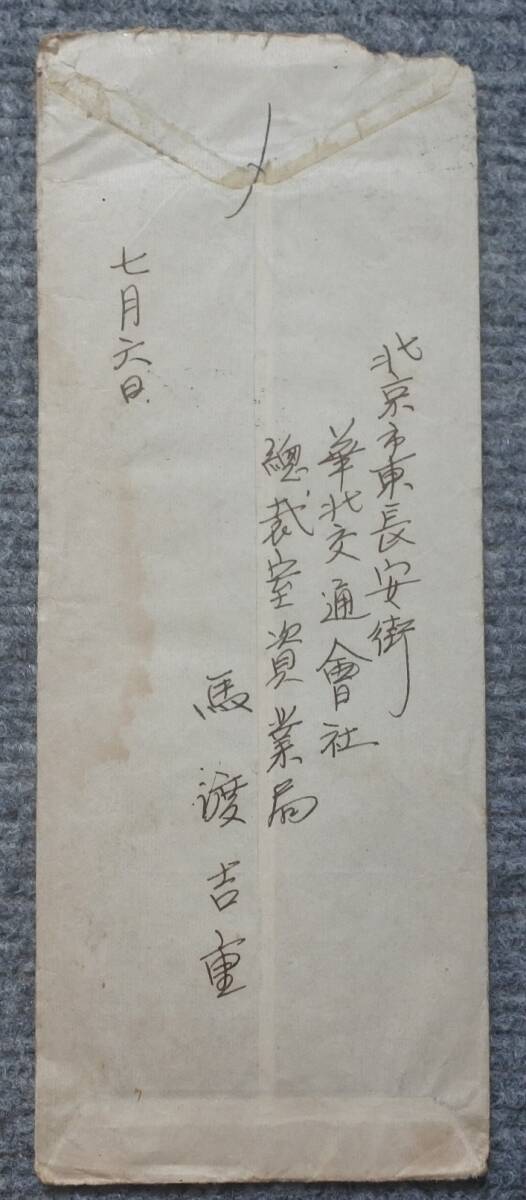 北京市東長安街
華北交通會社
總裁室資業局
馬渡吉重
七月六日
〆